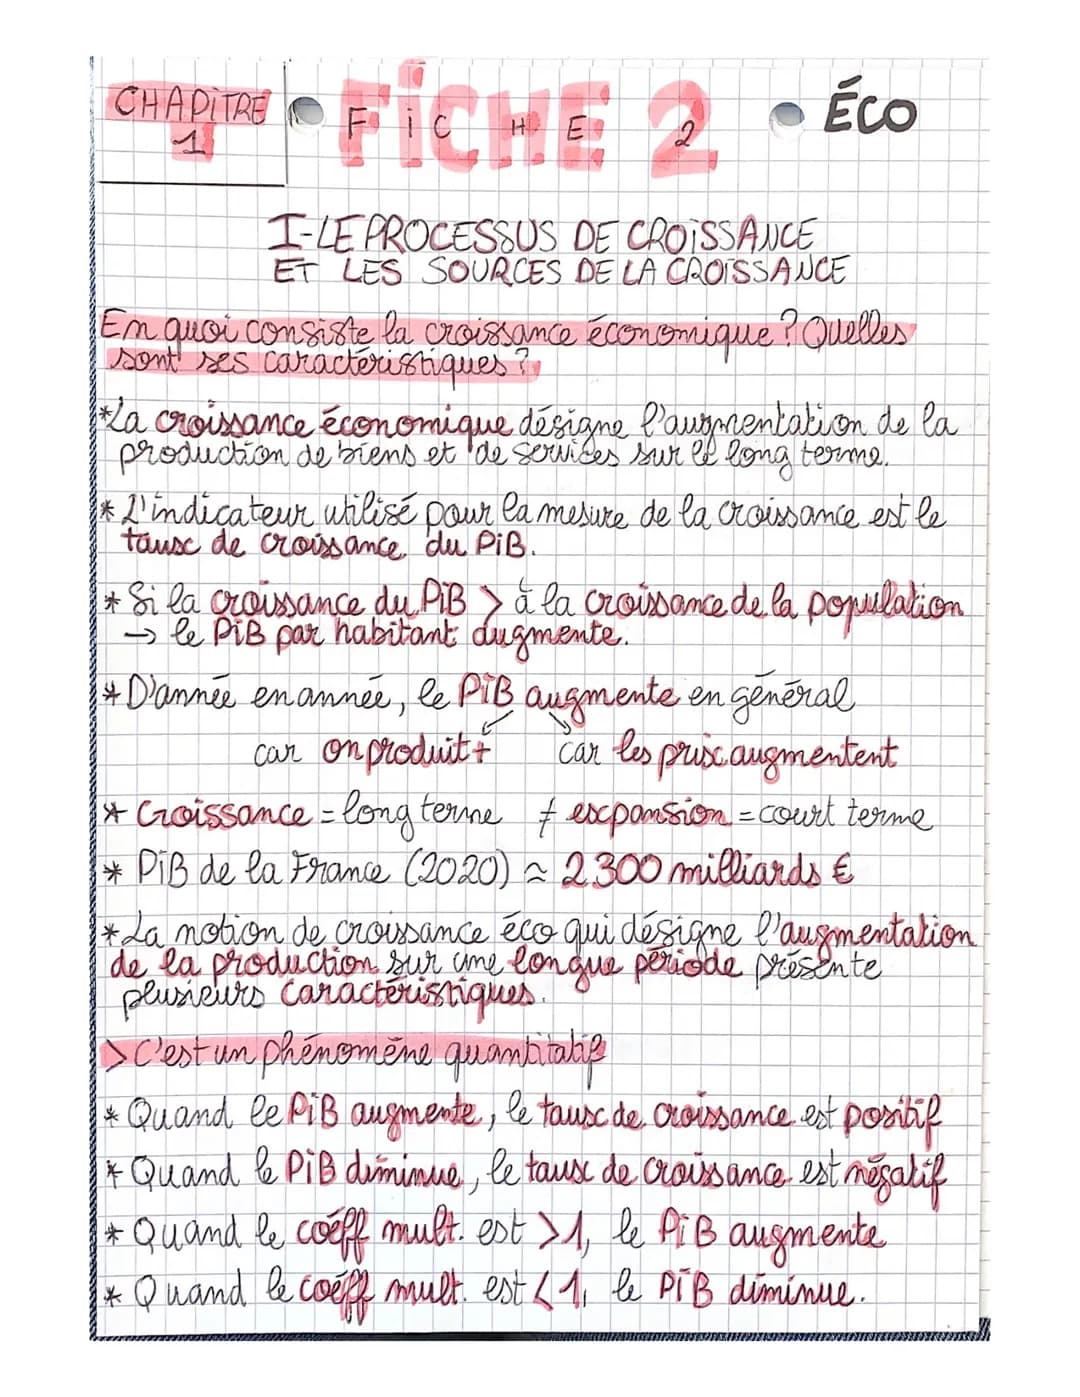 CHAPITRE
1
FICHE 2
FICHE 2
ÉCO
I-LE PROCESSUS DE CROISSANCE
ET LES SOURCES DE LA CROISSANCE
En quoi consiste la croissance économique ? Quelles
sont ses caractéristiques ?
*La croissance économique désigne l'augmentation de la
production de biens et de services sur le long terme.
* L'indicateur utilisé pour la mesure de la croissance est le
taux de croissance du PiB.
* Si la croissance du PiB > à la croissance de la population
→ le PiB par habitant augmente.
* D'année en année, le PiB augmente en général
car on produit + car les prix augmentent
* Croissance = long terme ≠ expansion = court terme
* PiB de la France (2020) ≈ 2 300 milliards €
* La notion de croissance éco qui désigne l'augmentation
de la production sur une longue période présente
plusieurs caractéristiques.
> C'est un phénomène quantitatif
* Quand le PiB augmente, le taux de croissance est positif
* Quand le PiB diminue, le taux de croissance est négatif
* Quand le coéff mult. est >1, le PiB augmente
* Quand le coéff mult. est <1, le PiB diminue.